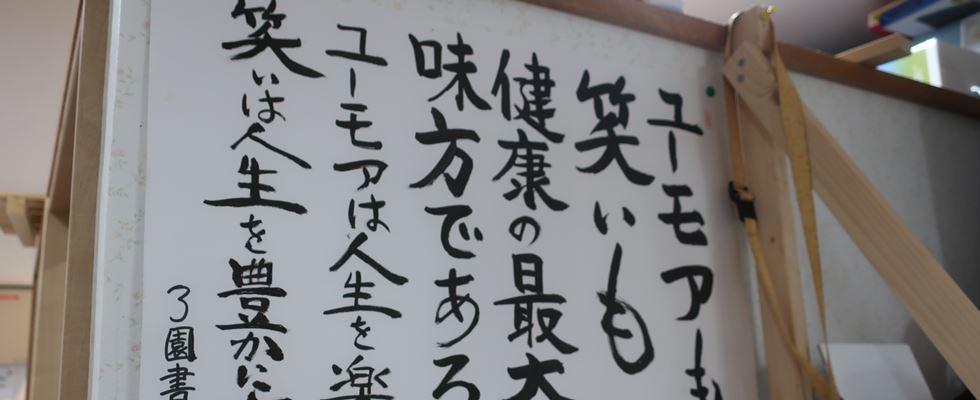 ユーモアーも
笑いも
健康の最大
味方である
ユーモアは人生を楽
笑いは人生を豊かに
３園書